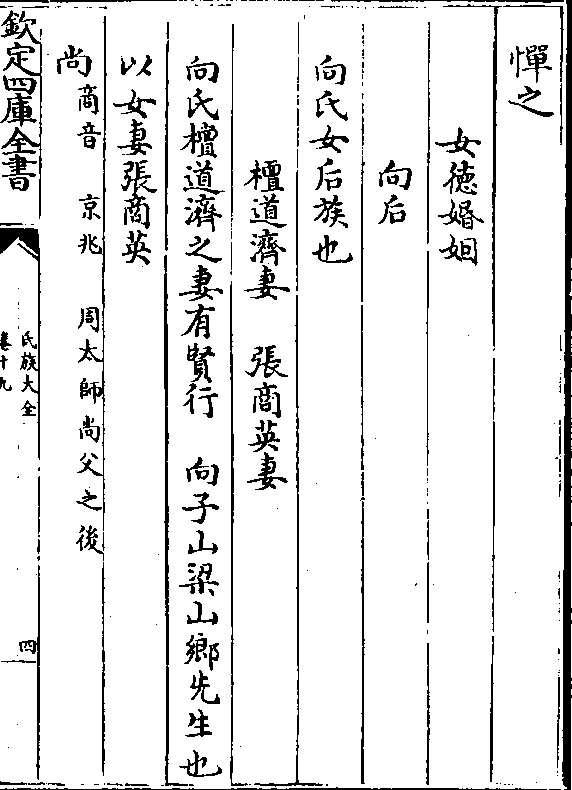 憚之
女徳婚姻
向后
向氏女后族也
檀道濟妻　張商英妻
向氏檀道濟之妻有賢行　向子山梁山鄉先生也
以女妻張商英
尚商音　京兆　周太師尚父之後
欽定四庫全書
氏族大全
卷十九
四